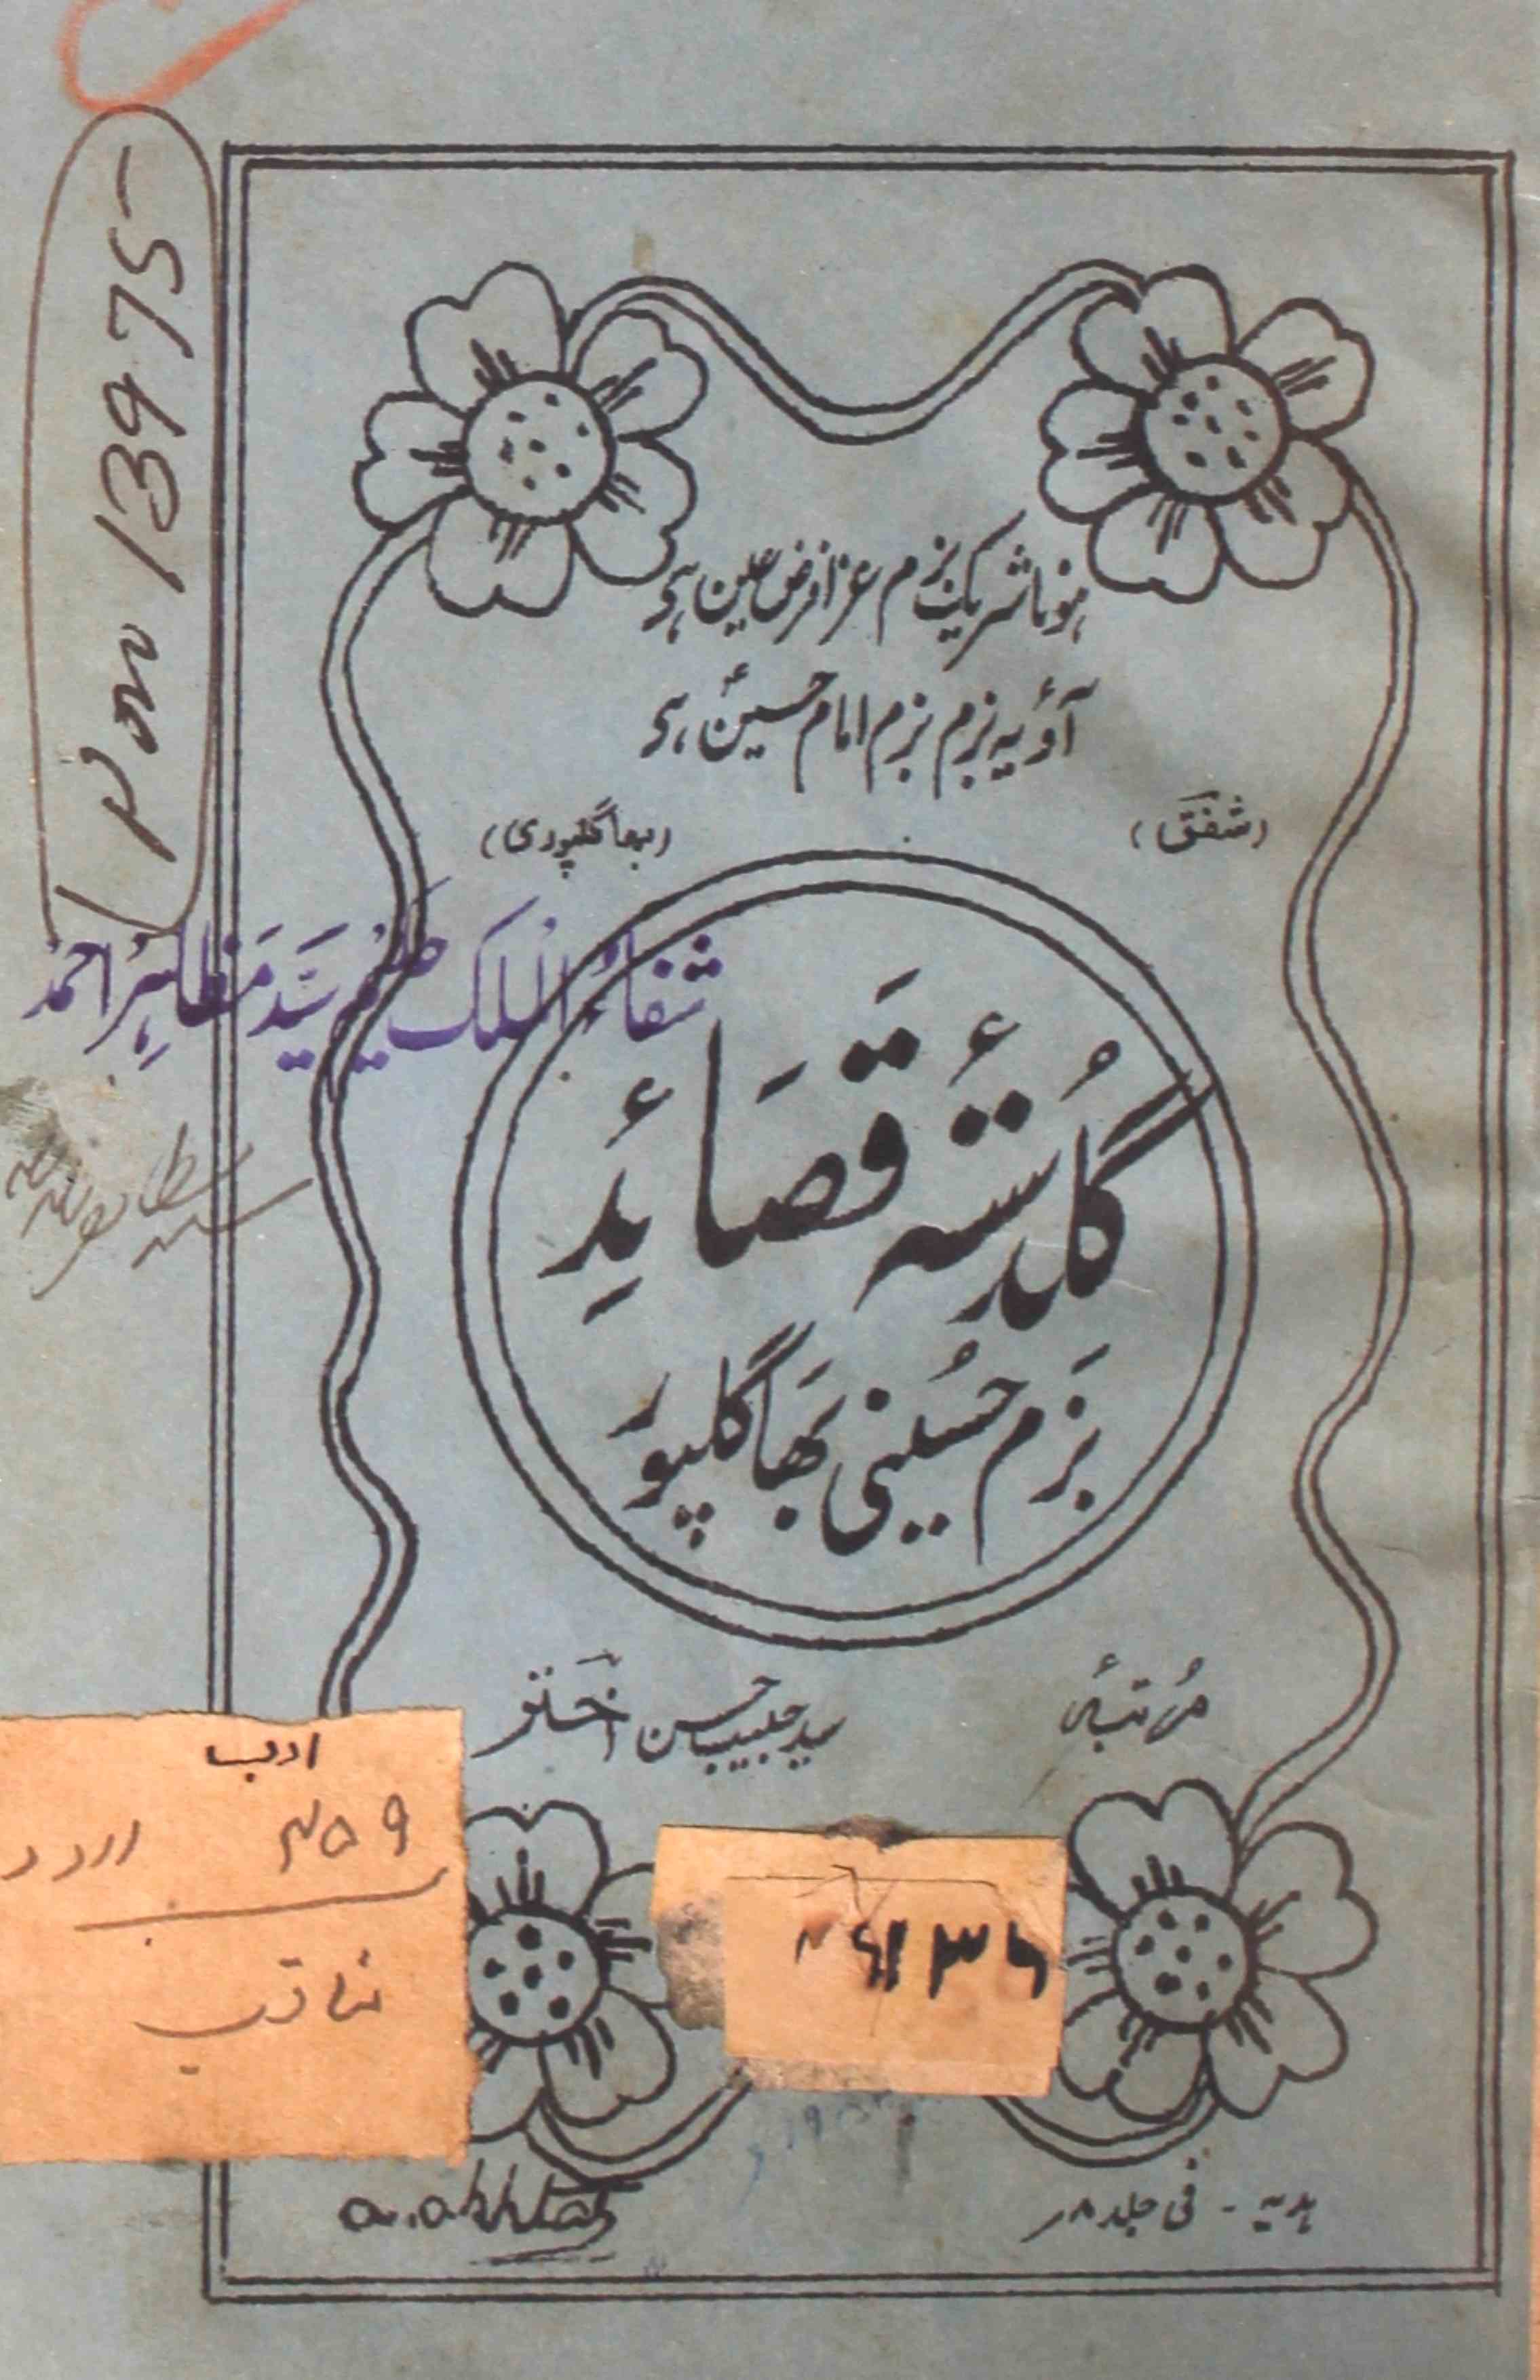 Pon 13975
ہونا شریک بزم عزا فرض عین ہے
آؤ یہ بزم بزم امام حسینؑ ہے
(شفق) (بھاگلپوری)
شفاءُ الملک حکیم سیّد مظاہر احمد
گلدستۂ قصائد
بزم حسینی بھاگلپور
مرتبہٴ سید حبیب حسن اختر
ادب
۴۵۹ اردو
مناقب
۱۳۶
a.akhtar
ہدیہ - فی جلد ۸ر